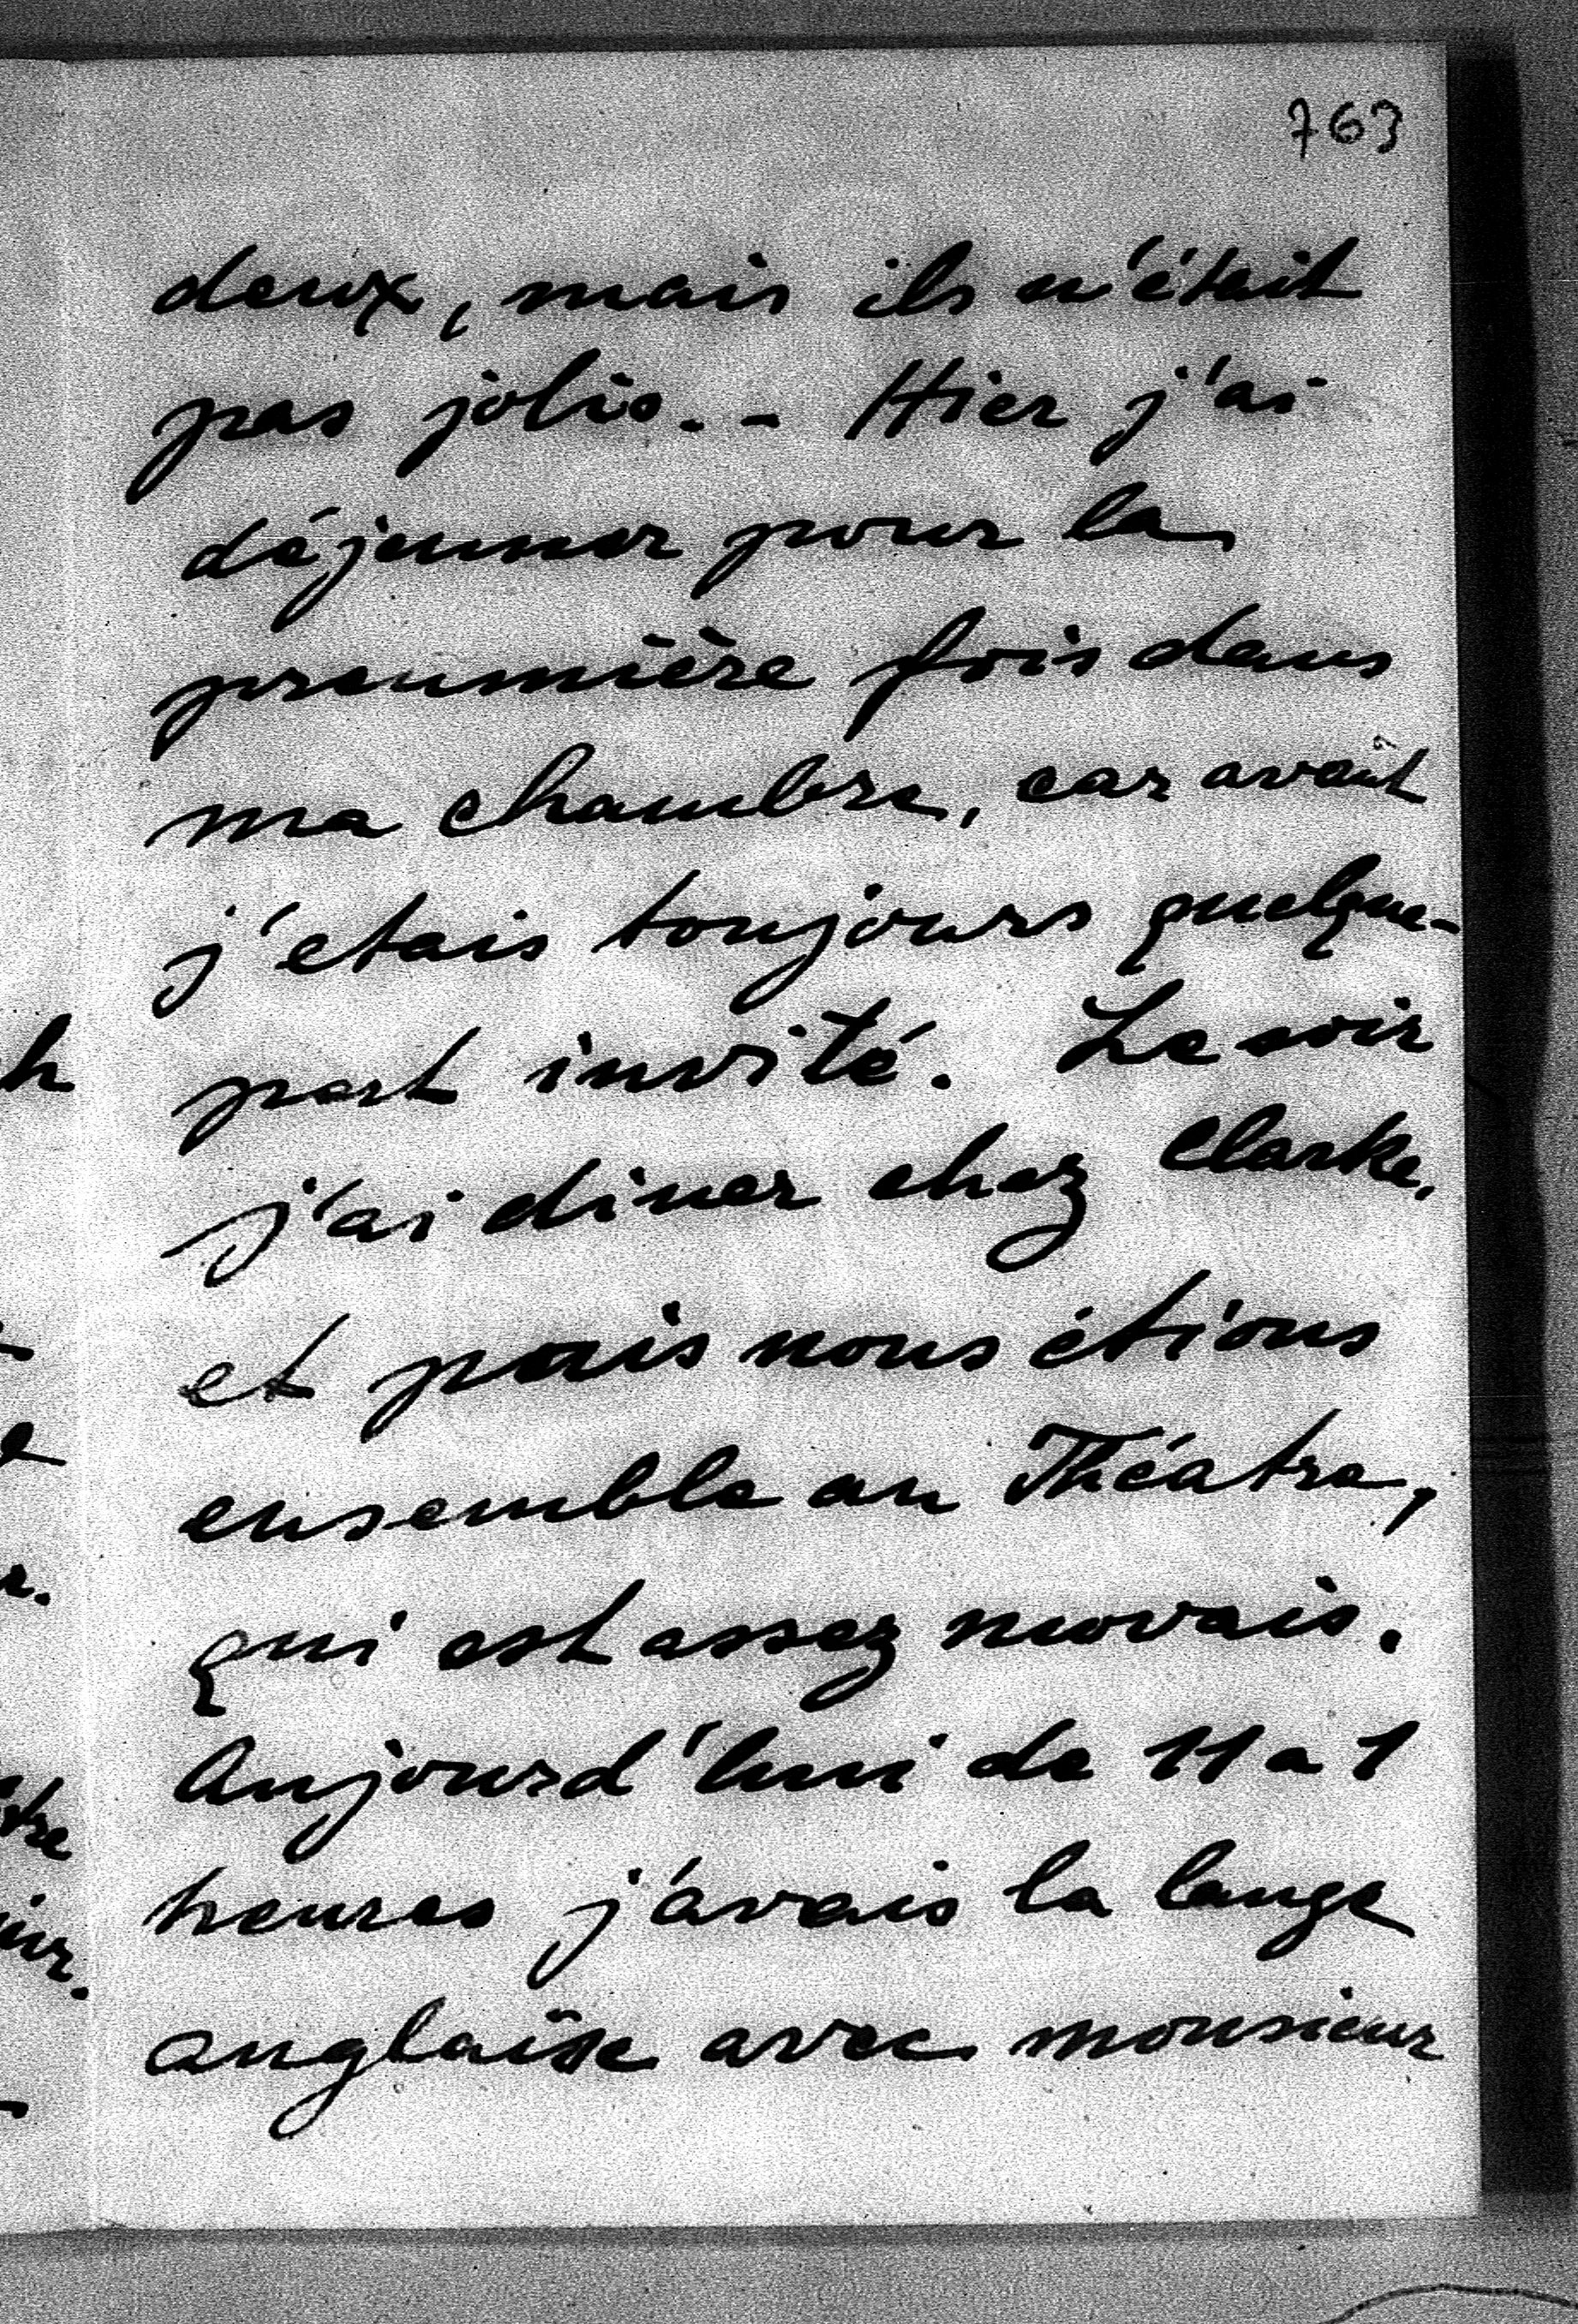 763
deux, mais ils n'était
pas jolis. - Hier j'ai
déjeuner pour la
preumière fois dans
ma chambre, car avait
j'etais toujours quelque-
part invité. Le soir
j'ai diner chez Clarke,
et puis nous étions
ensemble au Théatre,
qui est assez movais.
Aujourd'hui de 11 a 1
heures j'avais la lange
anglaise avec monsieur